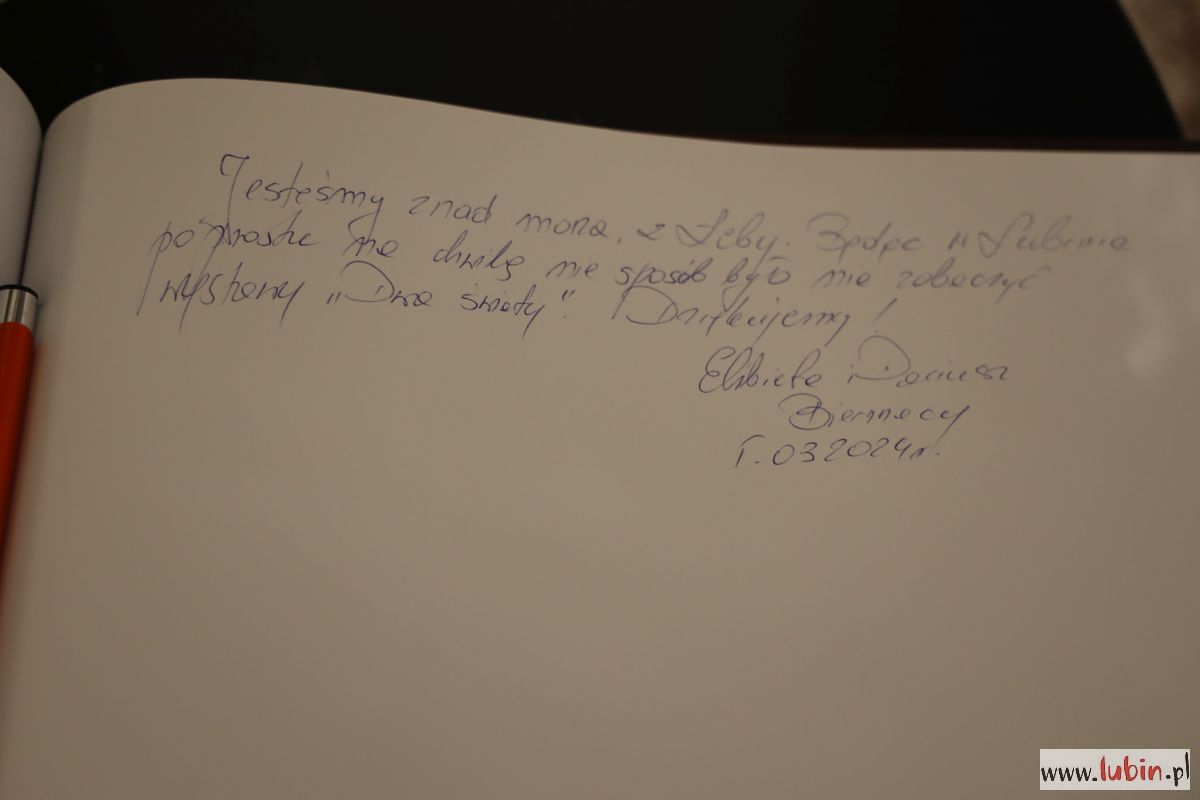 Jesteśmy znad morza, z Łeby. Będąc w Lubinie
po prostu na chwilę nie sposób było nie zobaczyć
wystawy „Dwa światy”. Dziękujemy!
Elżbieta i Dariusz
Biernaccy
1.03.2024 r.
www.lubin.pl